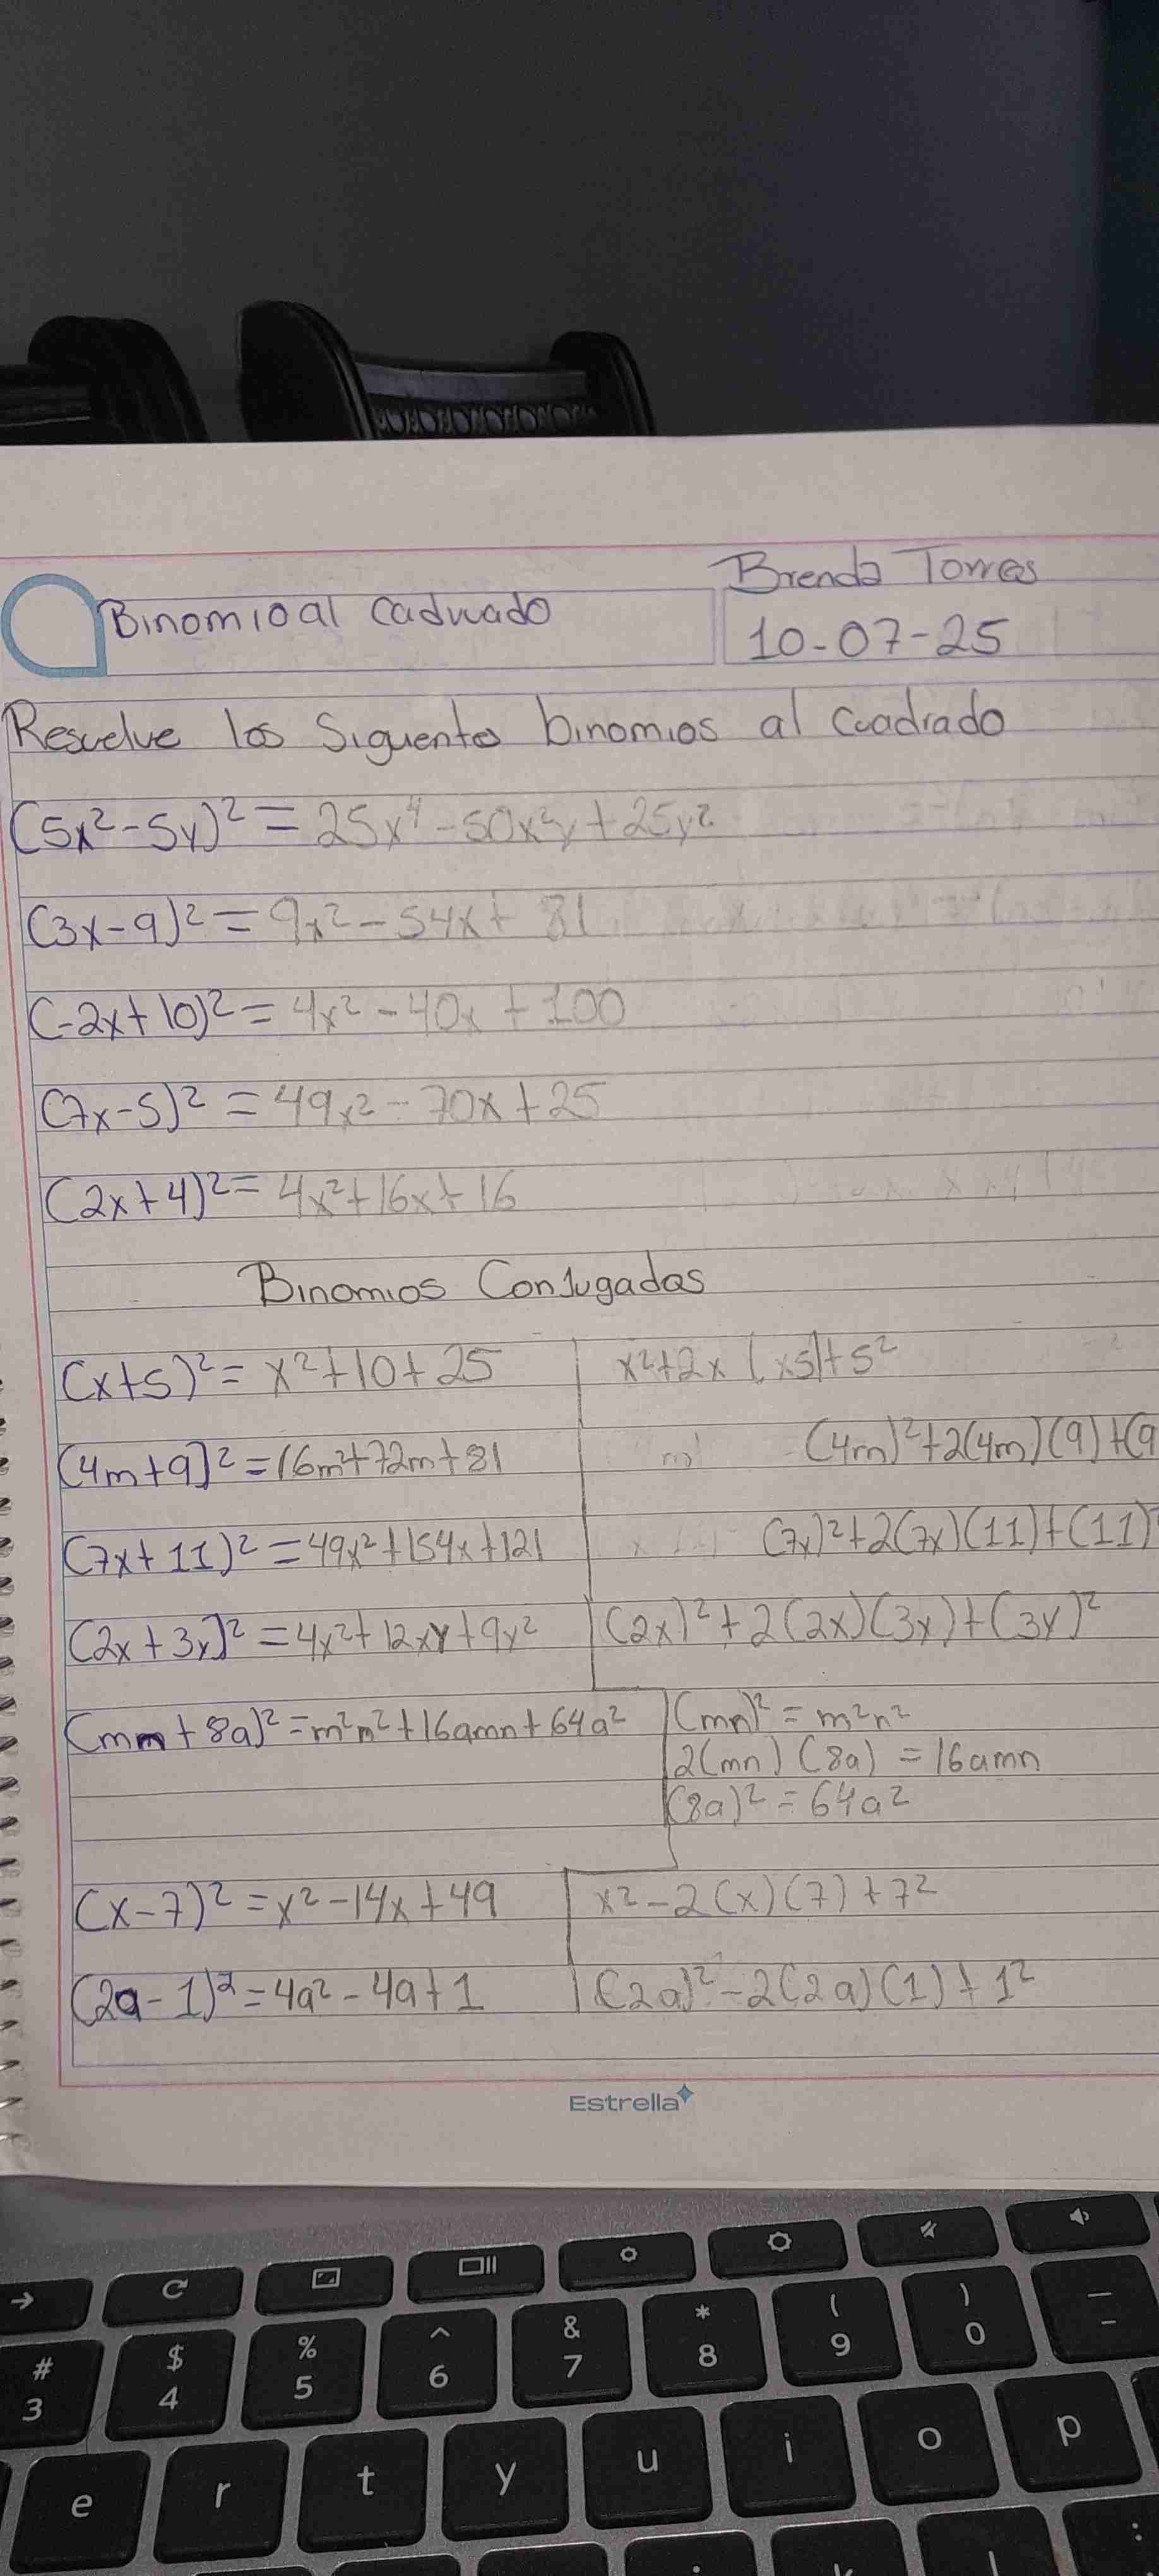 Brenda Torres
Binomio al caduado
10-07-25
Resuelve los Siguentes binomios al cuadrado
(5x²-5y)² = 25x⁴-50x²y+25y²
(3x-9)² = 9x²-54x+81
(-2x+10)² = 4x²-40x+100
(7x-5)² = 49x²-70x+25
(2x+4)² = 4x²+16x+16
Binomios Conjugadas
(x+5)² = x²+10+25 x²+2x(x5)+5²
(4m+9)² = 16m²+72m+81 (4m)²+2(4m)(9)+(9
(7x+11)² = 49x²+154x+121 (7x)²+2(7x)(11)+(11)
(2x+3y)² = 4x²+12xy+9y² (2x)²+2(2x)(3y)+(3y)²
(mn+8a)² = m²n²+16amn+64a² (mn)² = m²n²
2(mn)(8a) = 16amn
(8a)² = 64a²
(x-7)² = x²-14x+49 x²-2(x)(7)+7²
(2a-1)² = 4a²-4a+1 (2a)²-2(2a)(1)+1²
Estrella
# $ % ^ & * ( ) _
3 4 5 6 7 8 9 0 -
e r t y u i o p